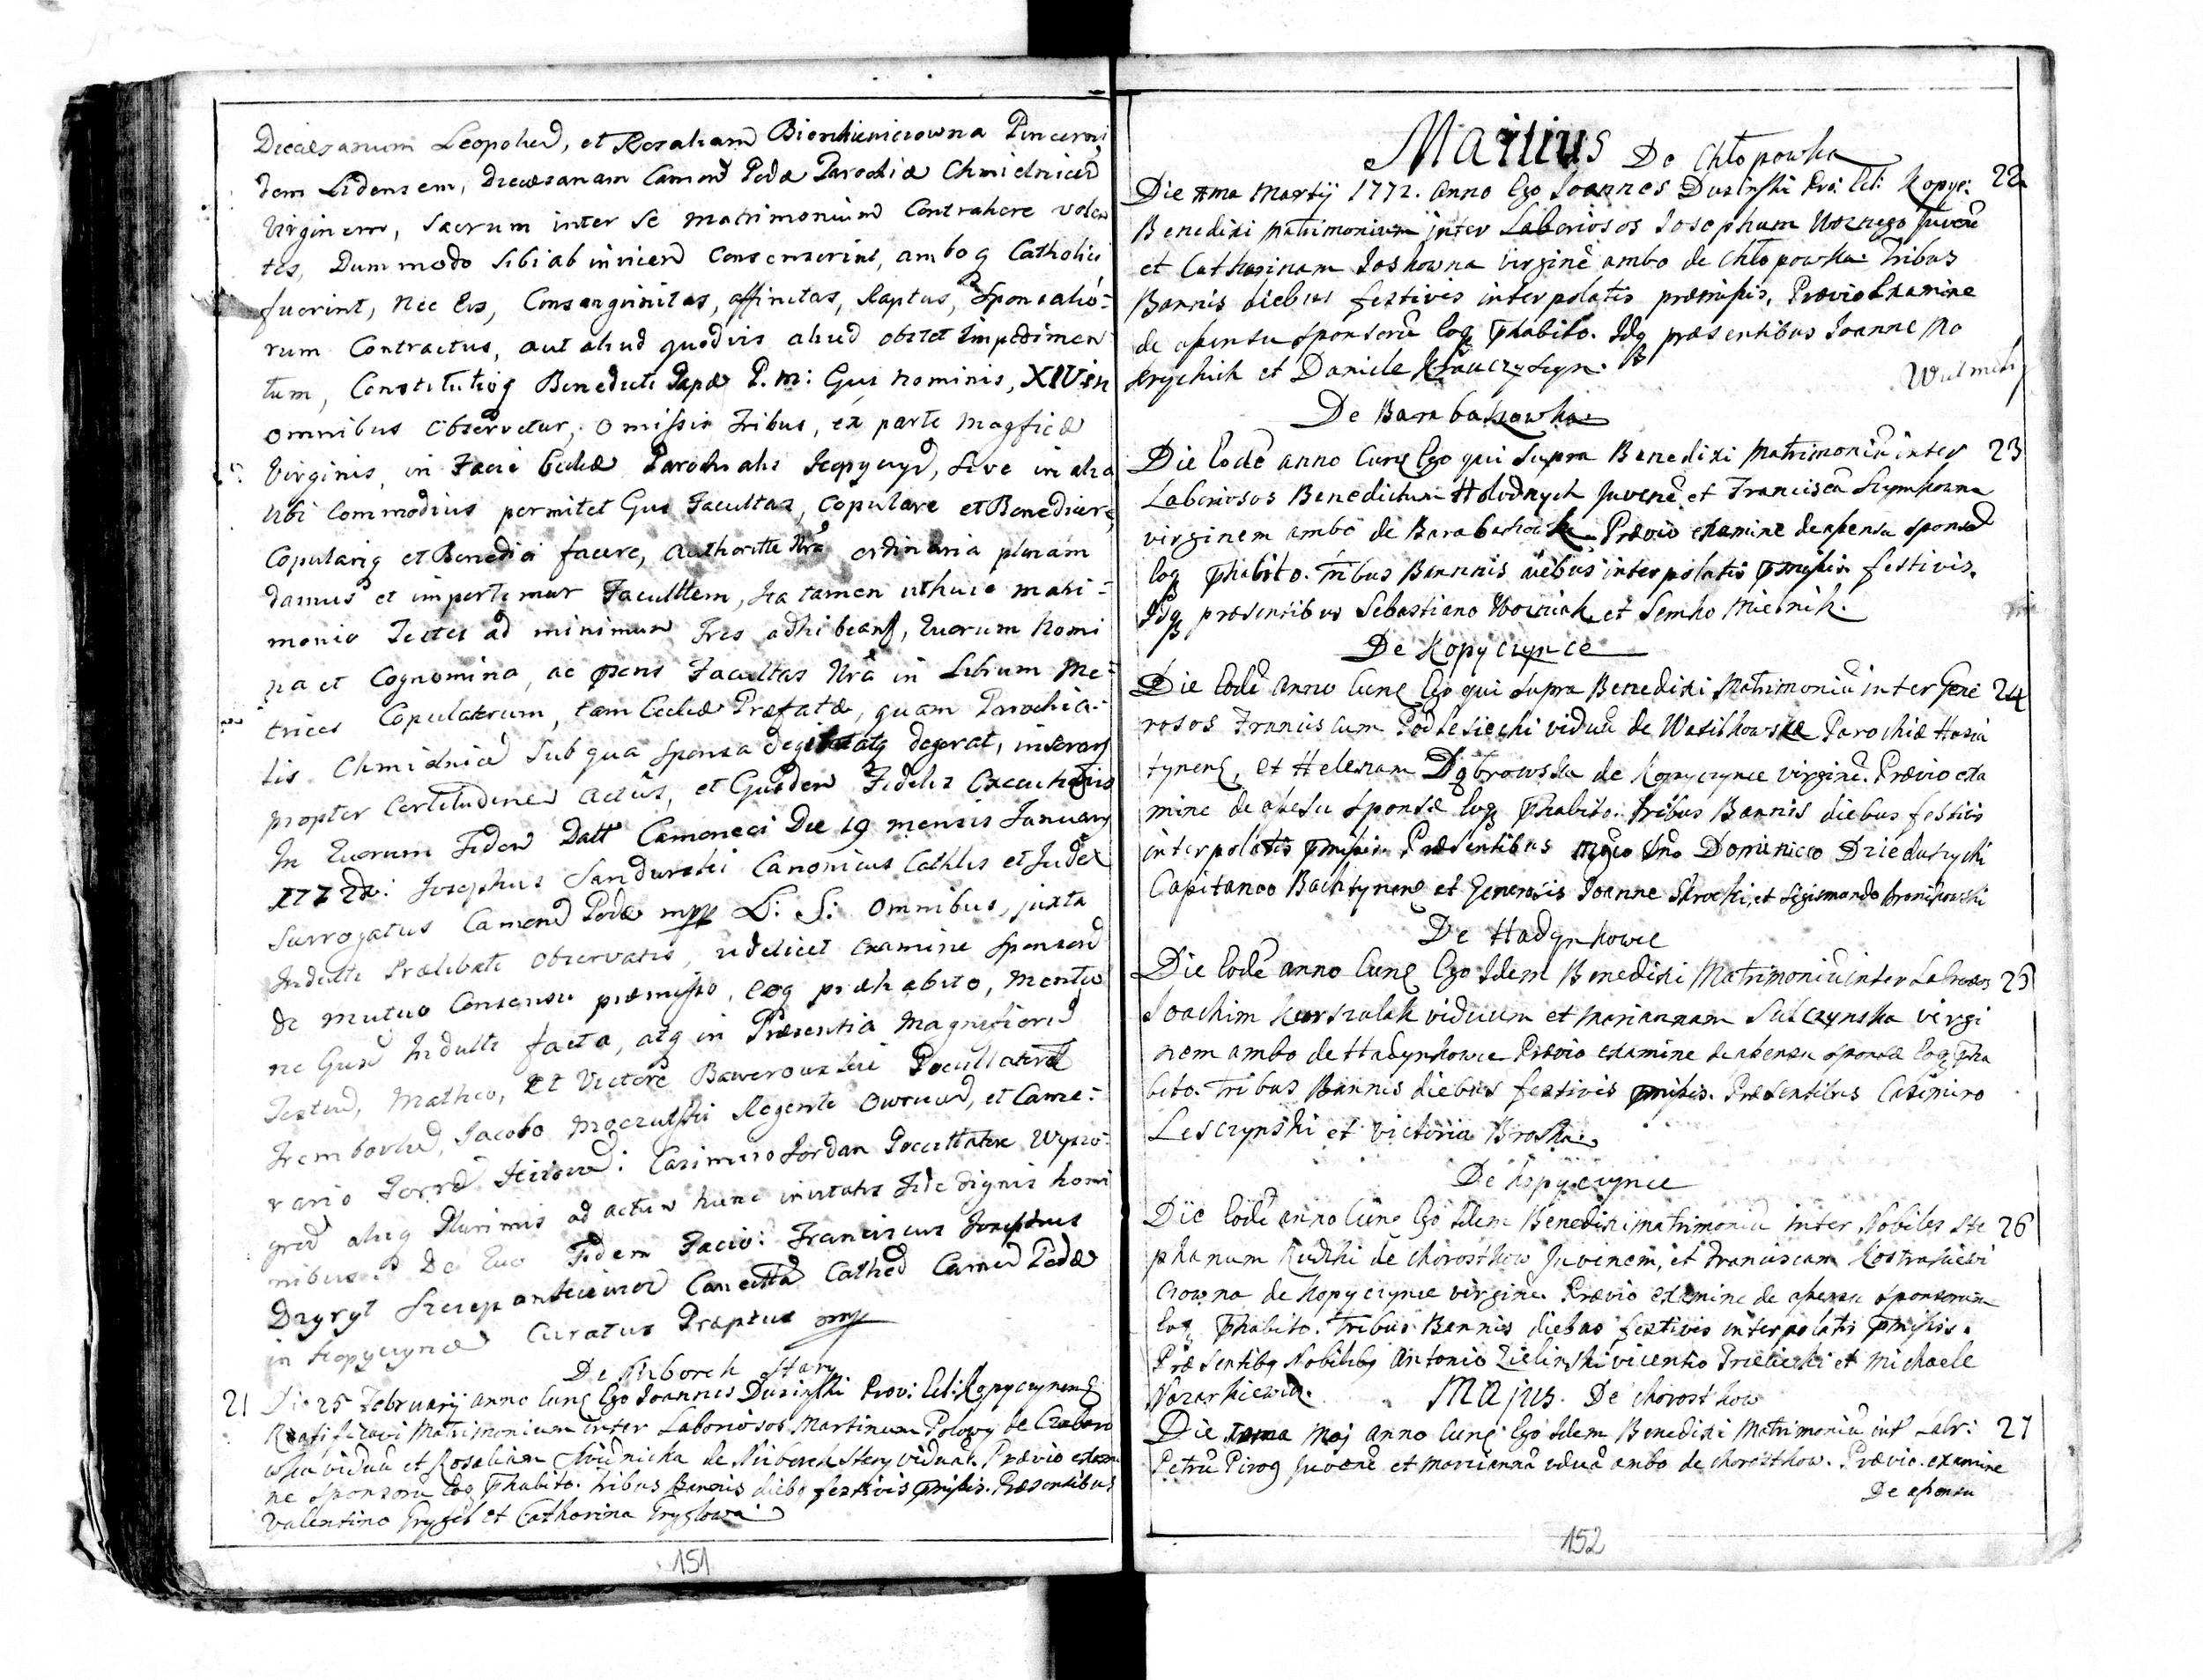 Diecaesanum Leopolien, et Rosaliam Bienkiewiczowna Pincerni
dem Lidensem, Diecaesanam Camen Podae Parochiae Chmielnicen
Virginem, Sacrum inter se matrimonium Contrahere volen
tes, Dummodo sibi ab invicem Consenserint, ambo q Catholici
fuerint, nec Eis, Consanguinitas, affinitas, Raptus, Sponsalio-
rum Contractus, aut aliud quodvis aliud obstet Impedimen
tum, Constitutioq Benedicti Papae P. m: Gus Nominis, XIV in
omnibus observetur, omissis Tribus, ex parte Magficae
Virginis, in Facie Ecclae Parochialis Kopycyn, sive in alia
Ubi Commodius permitet Gus Facultas, Copulare et Benedicere,
Copulariq et Benedici facere, Authoritte Nra ordinaria plenam
damus et impertimur Facultttem, Ita tamen ut huic matri-
monio Testes ad minimum Tres adhibeant, Quorum Nomi
na et Cognomina, ac psens Facultas Nra in Librum Me-
trices Copulatorum, tam Ecclae Praefatae, quam Parochia-
lis Chmielnicen sub qua sponsa degit atq degerat, inserant
propter Certitudinem actus, et Gusdem Fidelis Executionis
In Quorum Fidem Datt Cameneci Die 19 mensis January
1772do: Josephus Sandurski Canonicus Cathlis et Judex
Surrogatus Camen Podae mpp L: S: omnibus, juxta
Indulti Praelibati observatis, videlicet Examine Sponsor
de mutuo Consensu praemisso, eoq praehabito, mentio
ne Gus Indulti facta, atq in Praesentia Magnificor
Testiu, Matheo, et Victore Baworowskie Pocillator
Trembovlien, Jacobo Regente Owrucen, et Came-
rario Terrae Kiioven: Casimiro Jordan Pocillatore Wyszo-
gred aliisq Plurimis ad actum hunc invitatis Fide dignis homi
nibus De Quo Fidem Facio: Franciscus Josephus
Dzyryt Szczepankiewicz Cathed Camen Podae
in Kopycyncen Curatus Praeptus mp
De Niborch Stary
21 Die 25 February anno Cure Ego Joannes Dusinski Provi: Ecl: Kopyczynens
Ratificavi Matrimonium inter Laboriosos Martinum Polowy de Czabaro
wka viduu et Rosaliam Swidnicka de Niborch Stary viduam. Praevio exami
ne sponsoru Eoq Phabito. tribus Bannis diebq festivis pmissis. Praesentibus
Valentino Grygiel et Catharina Gryglowa
151
Martius De Chłopowka
Die ma Martij 1772. Anno Ego Joannes Dusinski Pro: Ecl: Kopycz: 22
Benedixi Matrimonium inter Laboriosos Josephum Woznego Juvene
et Catharinam Jaskowna virgine ambo de Chłopowka. Tribus
Bannis diebus festivis interpolatis praemissis, Praevio Examine
de assensu sponsoru Eoq Phabito. Idq praesentibus Joanne Mo
krychich et Daniele.
De Barabaszowka
Die Eode anno Cure Ego qui supra Benedixi Matrimoniu inter 23
Laboriosos Benedictum Hołodnych Juvene et Francisca Szymkowna
virginem ambo de Barabaszowka Praevio examine de assensu sponsor
Eoq Phabito. Tribus Bannis diebus interpolatis pmissis festivis.
Idq praesentibus Sebastiano Wozniak et Semko Mielnik.
De Kopyczynce
Die Eode anno Cure Ego qui supra Benedixi Matrimoniu inter Gene 24
rosos Franciscum Podlesiecki viduu de Wasilkowska Parochiae Husia
tynens, et Helenam Dąbrowska de Kopyczynce virgine. Praevio exa
mine de assesu sponsae Eoq Phabito. Tribus Bannis diebus festivis
interpolatis pmissis. Praesentibus Mgco Dno Dominico Dzieduszycki
Capitaneo Bachtynens et Generosis Joanne Skrocki, et Sigismundo Bronikowski
De Hadynkowce
Die Eode anno Cure Ego Idem Benedixi Matrimoniu inter Labrosos 25
Joachim Kurszalak viduum et Mariannam Sulczynska virgi
nem ambo de Hadynkowce Praevio examine de assensu sponsae Eoq Pha
bito. Tribus Bannis diebus festivis pmissis. Praesentibus Casimiro
Lesczynski et Victoria Broska.
De Kopyczynce
Die Eode anno Cure Ego Idem Benedixi matrimoniu inter Nobiles Ste 26
phanum Rudzki de Chorostkow Juvenem, et Franciscam Kostrakiewi
czowna de Kopyczynce virgine. Praevio examine de assensu sponsorum
Eoq Phabito. Tribus Bannis diebus festivis interpolatis pmissis.
Praesentibq Nobilibq Antonio Zielinski vicentio Trzebicki et Michaele
Nazarkiewicz. Majus. De Chorostkow
Die ma Maj anno Cure Ego Idem Benedixi Matrimoniu int Labr: 27
Petru Pirog Juvene et Marianna vidua ambo de Chorostkow. Praevio examine
De assensu
152